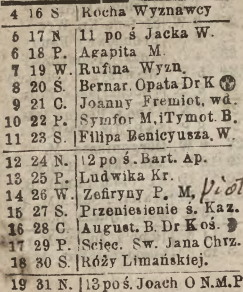 4 16 S. Rocha Wyznawcy
5 17 N 11 po ś Jacka W.
6 18 P. Agapita M.
7 19 W. Rufina Wyzn.
8 20 Ś. Bernar. Opata Dr K
9 21 C. Joanny Fremiot, wd.
10 22 P. Symfor M, i Tymot. B.
11 23 S. Filipa Benicyusza. W.
12 24 N. 12 po ś. Bart. Ap.
13 25 P. Ludwika Kr.
14 26 W. Zefiryny P. M,
15 27 S. Przeniesienie ś. Kaz.
16 28 C August. B. Dr Koś.
17 29 P. Ścięc. Sw. Jana Chrz.
18 30 S. Róży Limańskiej.
19 31 N. 13 po ś. Joach O N.M.P